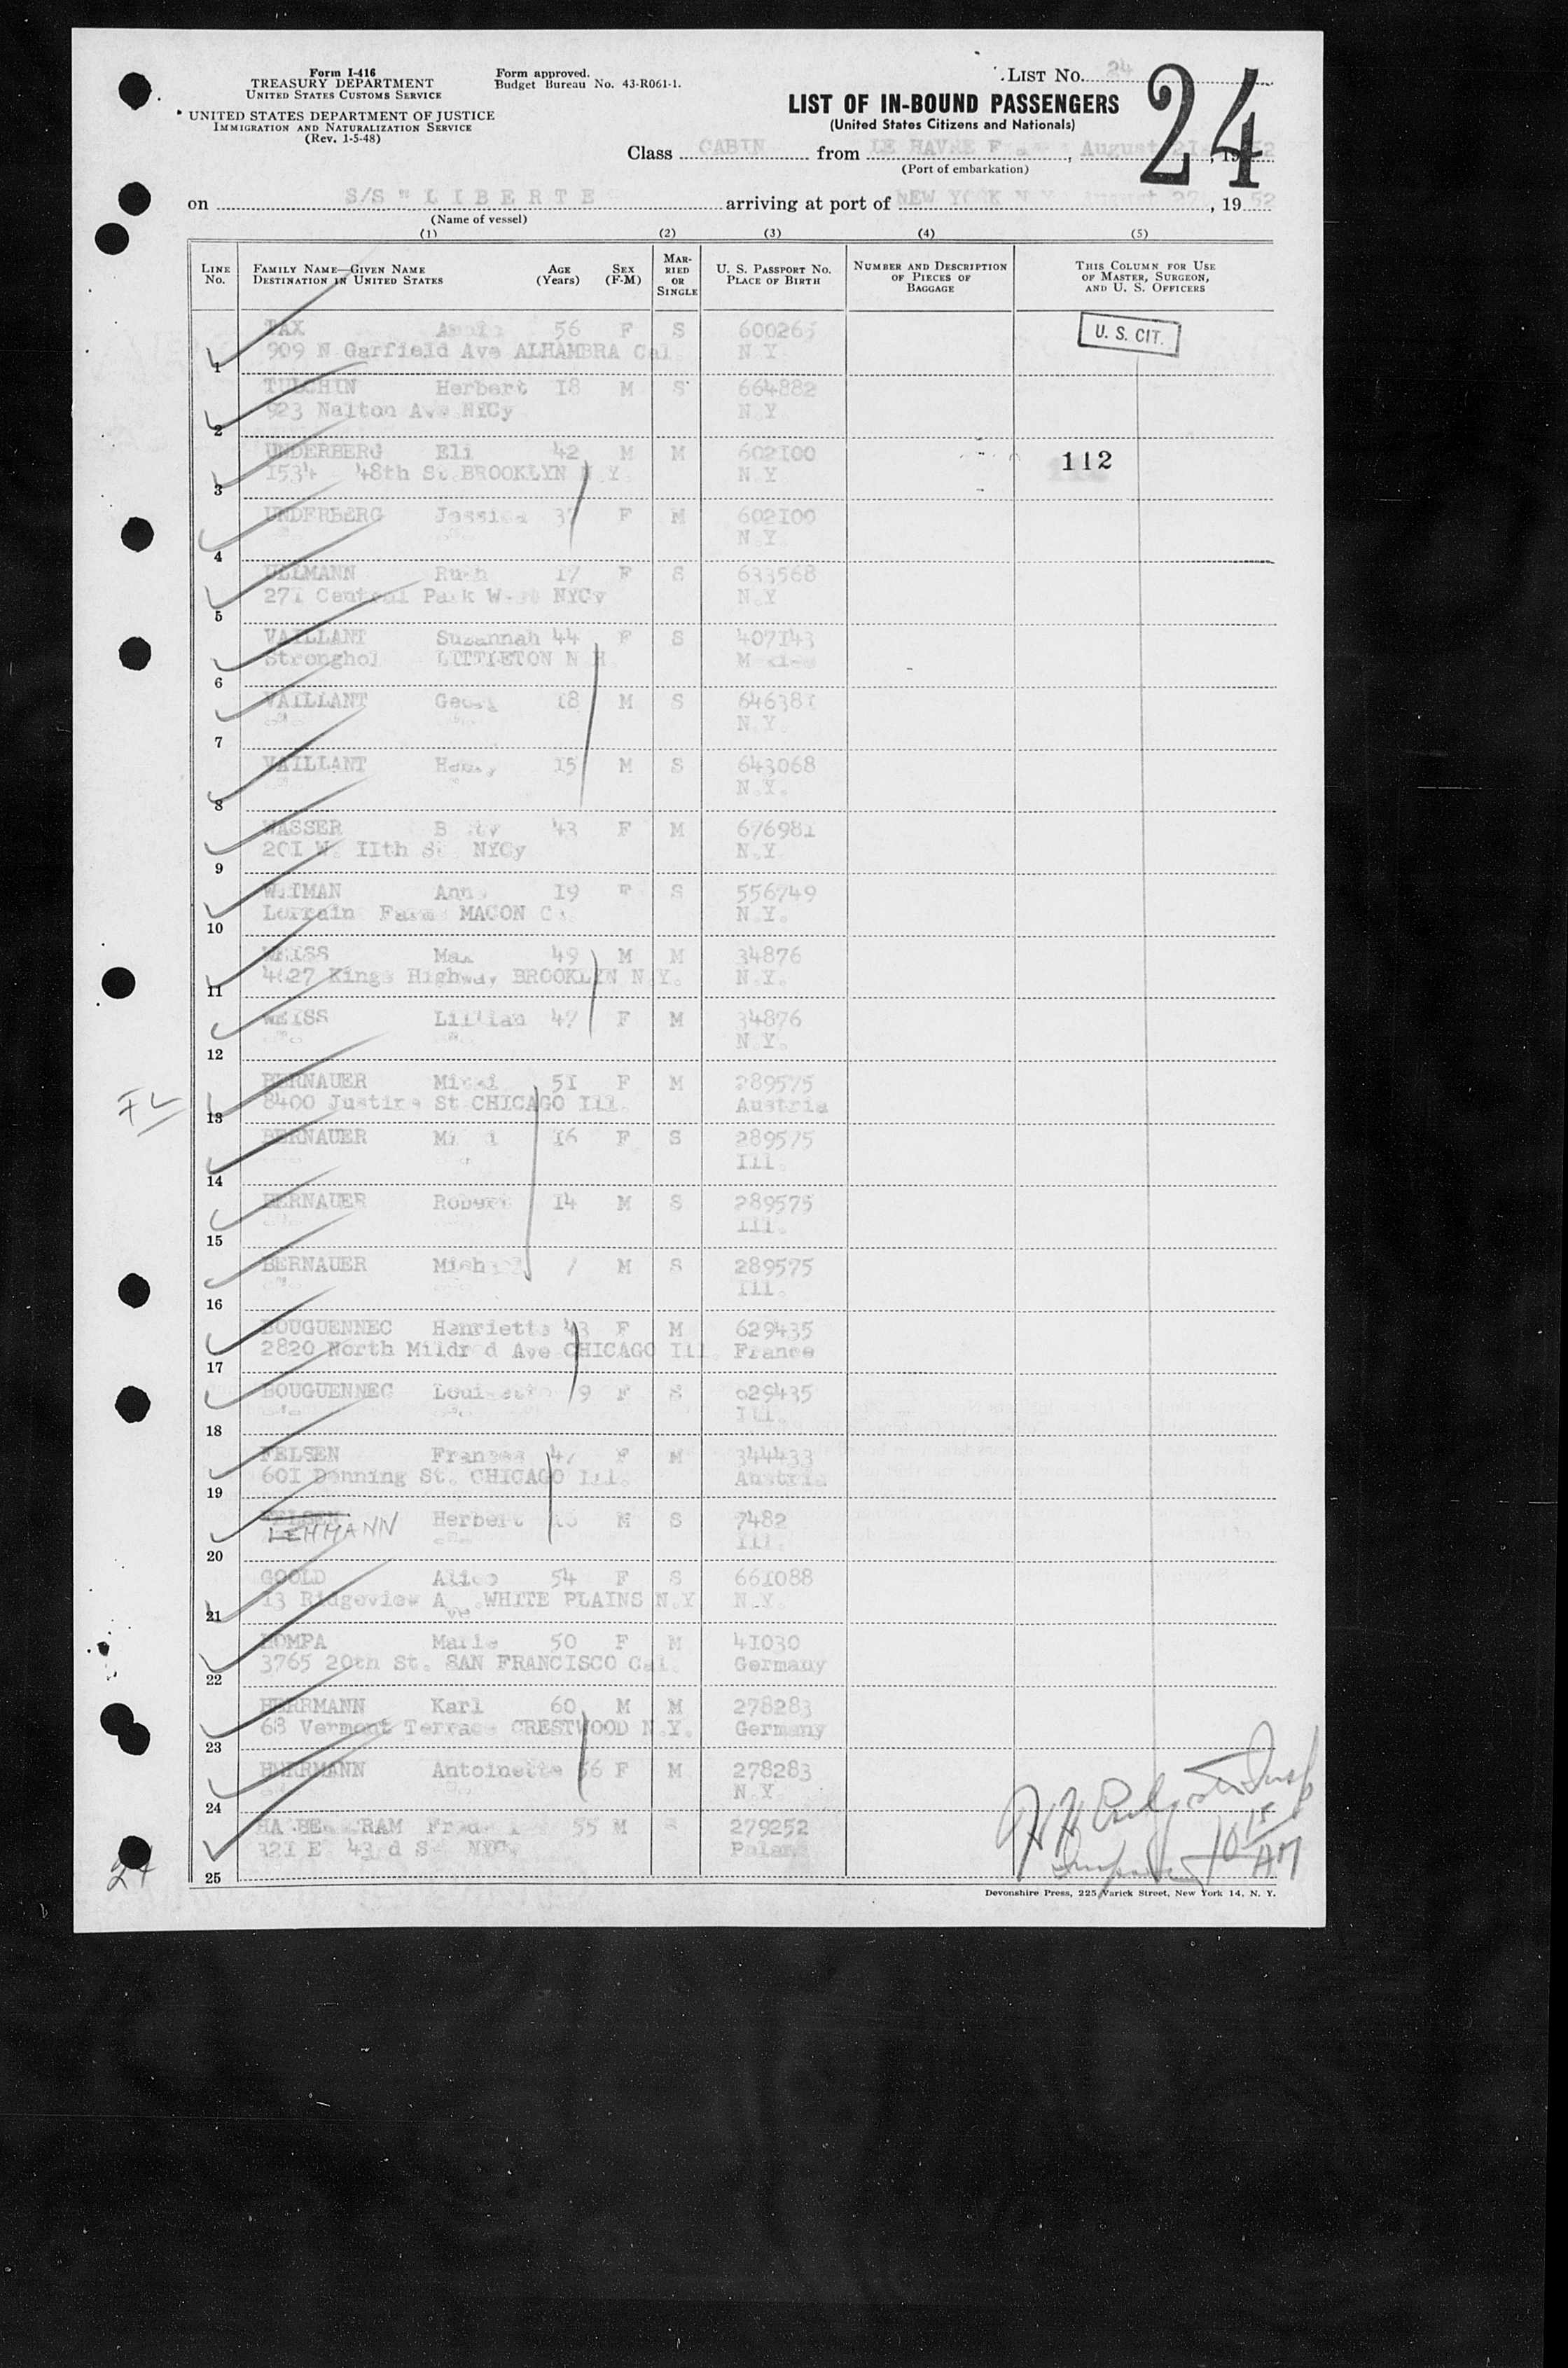 Form I-416
TREASURY DEPARTMENT
UNITED STATES CUSTOMS SERVICE
UNITED STATES DEPARTMENT OF JUSTICE
IMMIGRATION AND NATURALIZATION SERVICE
(Rev. 1-5-48)
Form approved.
Budget Bureau No. 43-R061-1.
LIST No. 24
24
LIST OF IN-BOUND PASSENGERS
(United States Citizens and Nationals)
Class CABIN from LE HAVRE, August 21, 1952
(Port of embarkation)
on S/S " LIBERTE arriving at port of NEW YORK N Y August 27, 1952
(Name of vessel)
(1) (2) (3) (4) (5)
LINE No. FAMILY NAME—GIVEN NAME DESTINATION IN UNITED STATES AGE (Years) SEX (F-M) MARRIED OR SINGLE U. S. PASSPORT No. PLACE OF BIRTH NUMBER AND DESCRIPTION OF PIECES OF BAGGAGE THIS COLUMN FOR USE OF MASTER, SURGEON, AND U. S. OFFICERS
TAX 56 F S 600265 U. S. CIT.
1 909 N Garfield Ave ALHAMBRA Cal N Y
TULCHIN Herbert 18 M S 664882
2 923 Walton Ave NYCy N Y
UNDERBERG Eli 42 M M 602100 112
3 1534 48th St BROOKLYN N Y N Y
UNDERBERG Jessica 37 F M 602100
4 N Y
ULLMANN 17 F S 633568
5 271 Central Park West NYCy N.Y
VAILLANT Suzannah 44 F S 407143
6 Stronghol LITTLETON N H
VAILLANT Georg 18 M S 646381
7 N.Y.
VAILLANT Henry 15 M S 643068
8 N.Y.
WASSER Betty 43 F M 676981
9 201 W. 11th St. NYCy N.Y
Ann 19 F S 556749
10 Lorrain Farm MACON N.Y.
WEISS Max 49 M M 34876
11 4627 Kings Highway BROOKLYN N.Y. N.Y.
WEISS Lillian 47 F M 34876
12 N.Y.
BERNAUER 51 F M 289575
13 8400 Justine St CHICAGO Ill. Austria
BERNAUER 16 F S 289575
14 Ill.
BERNAUER Robert 14 M S 289575
15 Ill.
BERNAUER Michael 7 M S 289575
16 Ill.
BOUGUENNEC Henriette 43 F M 629435
17 2820 North Mildred Ave CHICAGO Ill France
BOUGUENNEC 9 F S 629435
18 Ill.
FELSEN Frances 47 F M 344433
19 601 Denning St. CHICAGO Ill. Austria
LEHMANN Herbert M S 7482
20 Ill.
GOOLD Alice 54 F S 661088
21 13 Ridgeview Ave. WHITE PLAINS N.Y N.Y.
HOMPA Marie 50 F M 41030
22 3765 20th St. SAN FRANCISCO Cal. Germany
HERRMANN Karl 60 M M 278283
23 68 Vermont Terrace CRESTWOOD N.Y. Germany
HERRMANN Antoinette 56 F M 278283
24 N.Y
55 M S 279252
25 321 E 43rd St NYCy Poland
10 15 AM
24
Devonshire Press, 225 Varick Street, New York 14, N. Y.